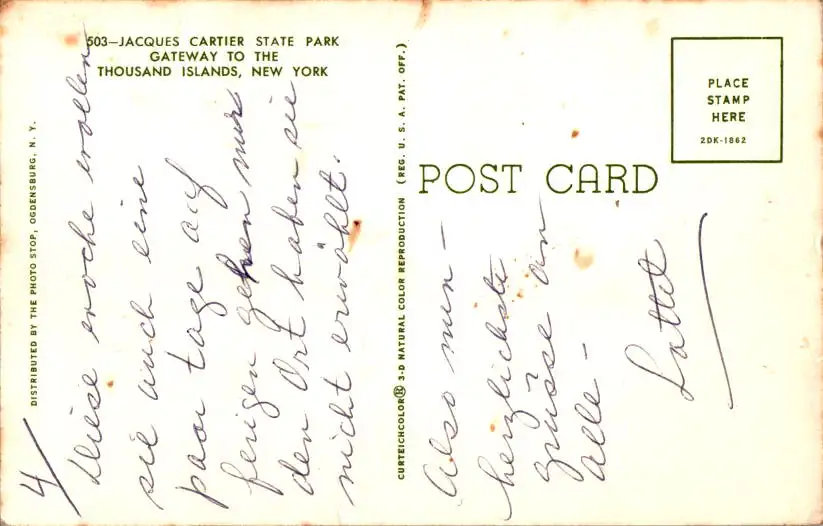 503—JACQUES CARTIER STATE PARK
GATEWAY TO THE
THOUSAND ISLANDS, NEW YORK
DISTRIBUTED BY THE PHOTO STOP, OGDENSBURG, N. Y.
4/
Diese woche wollen
sie auch eine
paar tage auf
ferigen gehen nur
den Ort haben sie
nicht erwählt.
CURTEICHCOLOR® 3-D NATURAL COLOR REPRODUCTION (REG. U. S. A. PAT. OFF.)
POST CARD
PLACE
STAMP
HERE
2DK-1862
Also nun —
herzlichste
grüsse an
alle —